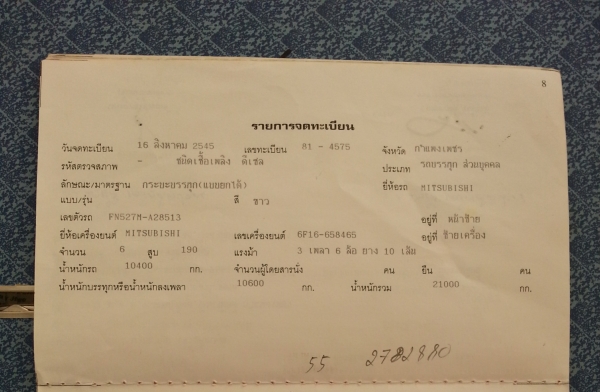 8
รายการจดทะเบียน
วันจดทะเบียน 16 สิงหาคม 2545 เลขทะเบียน 81 - 4575 จังหวัด กำแพงเพชร
รหัสตรวจสภาพ - ชนิดเชื้อเพลิง ดีเซล ประเภท รถบรรทุก ส่วนบุคคล
ลักษณะ/มาตรฐาน กระบะบรรทุก(แบบยกได้) ยี่ห้อรถ MITSUBISHI
แบบ/รุ่น สี ขาว
เลขตัวรถ FN527M-A28513 อยู่ที่ หน้าซ้าย
ยี่ห้อเครื่องยนต์ MITSUBISHI เลขเครื่องยนต์ 6F16-658465 อยู่ที่ ซ้ายเครื่อง
จำนวน 6 สูบ 190 แรงม้า 3 เพลา 6 ล้อ ยาง 10 เส้น
น้ำหนักรถ 10400 กก. จำนวนผู้โดยสารนั่ง คน ยืน คน
น้ำหนักบรรทุกหรือน้ำหนักลงเพลา 10600 กก. น้ำหนักรวม 21000 กก.
55 2782880